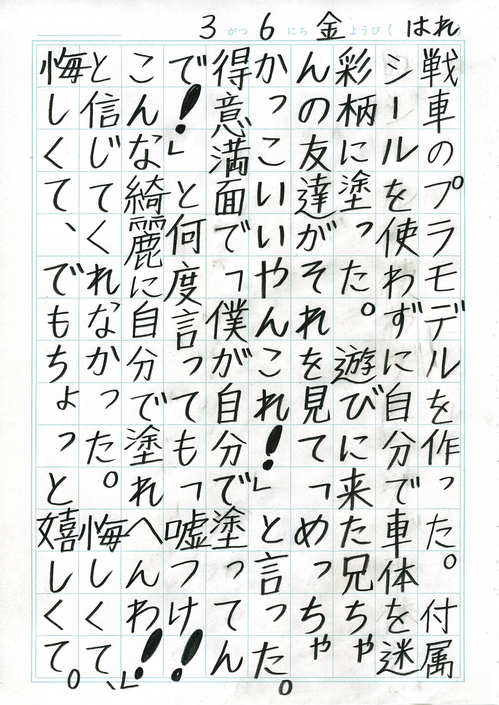 3がつ6にち金ようび(はれ)
戦車のプラモデルを作った。付属
シールを使わずに自分で車体を迷
彩柄に塗った。遊びに来た兄ちゃ
んの友達がそれを見て「めっちゃ
かっこいいやんこれ!」と言った。
得意満面で「僕が自分で塗ってん
で!」と何度言っても「嘘つけ!!
こんな綺麗に自分で塗れへんわ!!」
と信じてくれなかった。悔しくて、
悔しくて、でもちょっと嬉しくて。